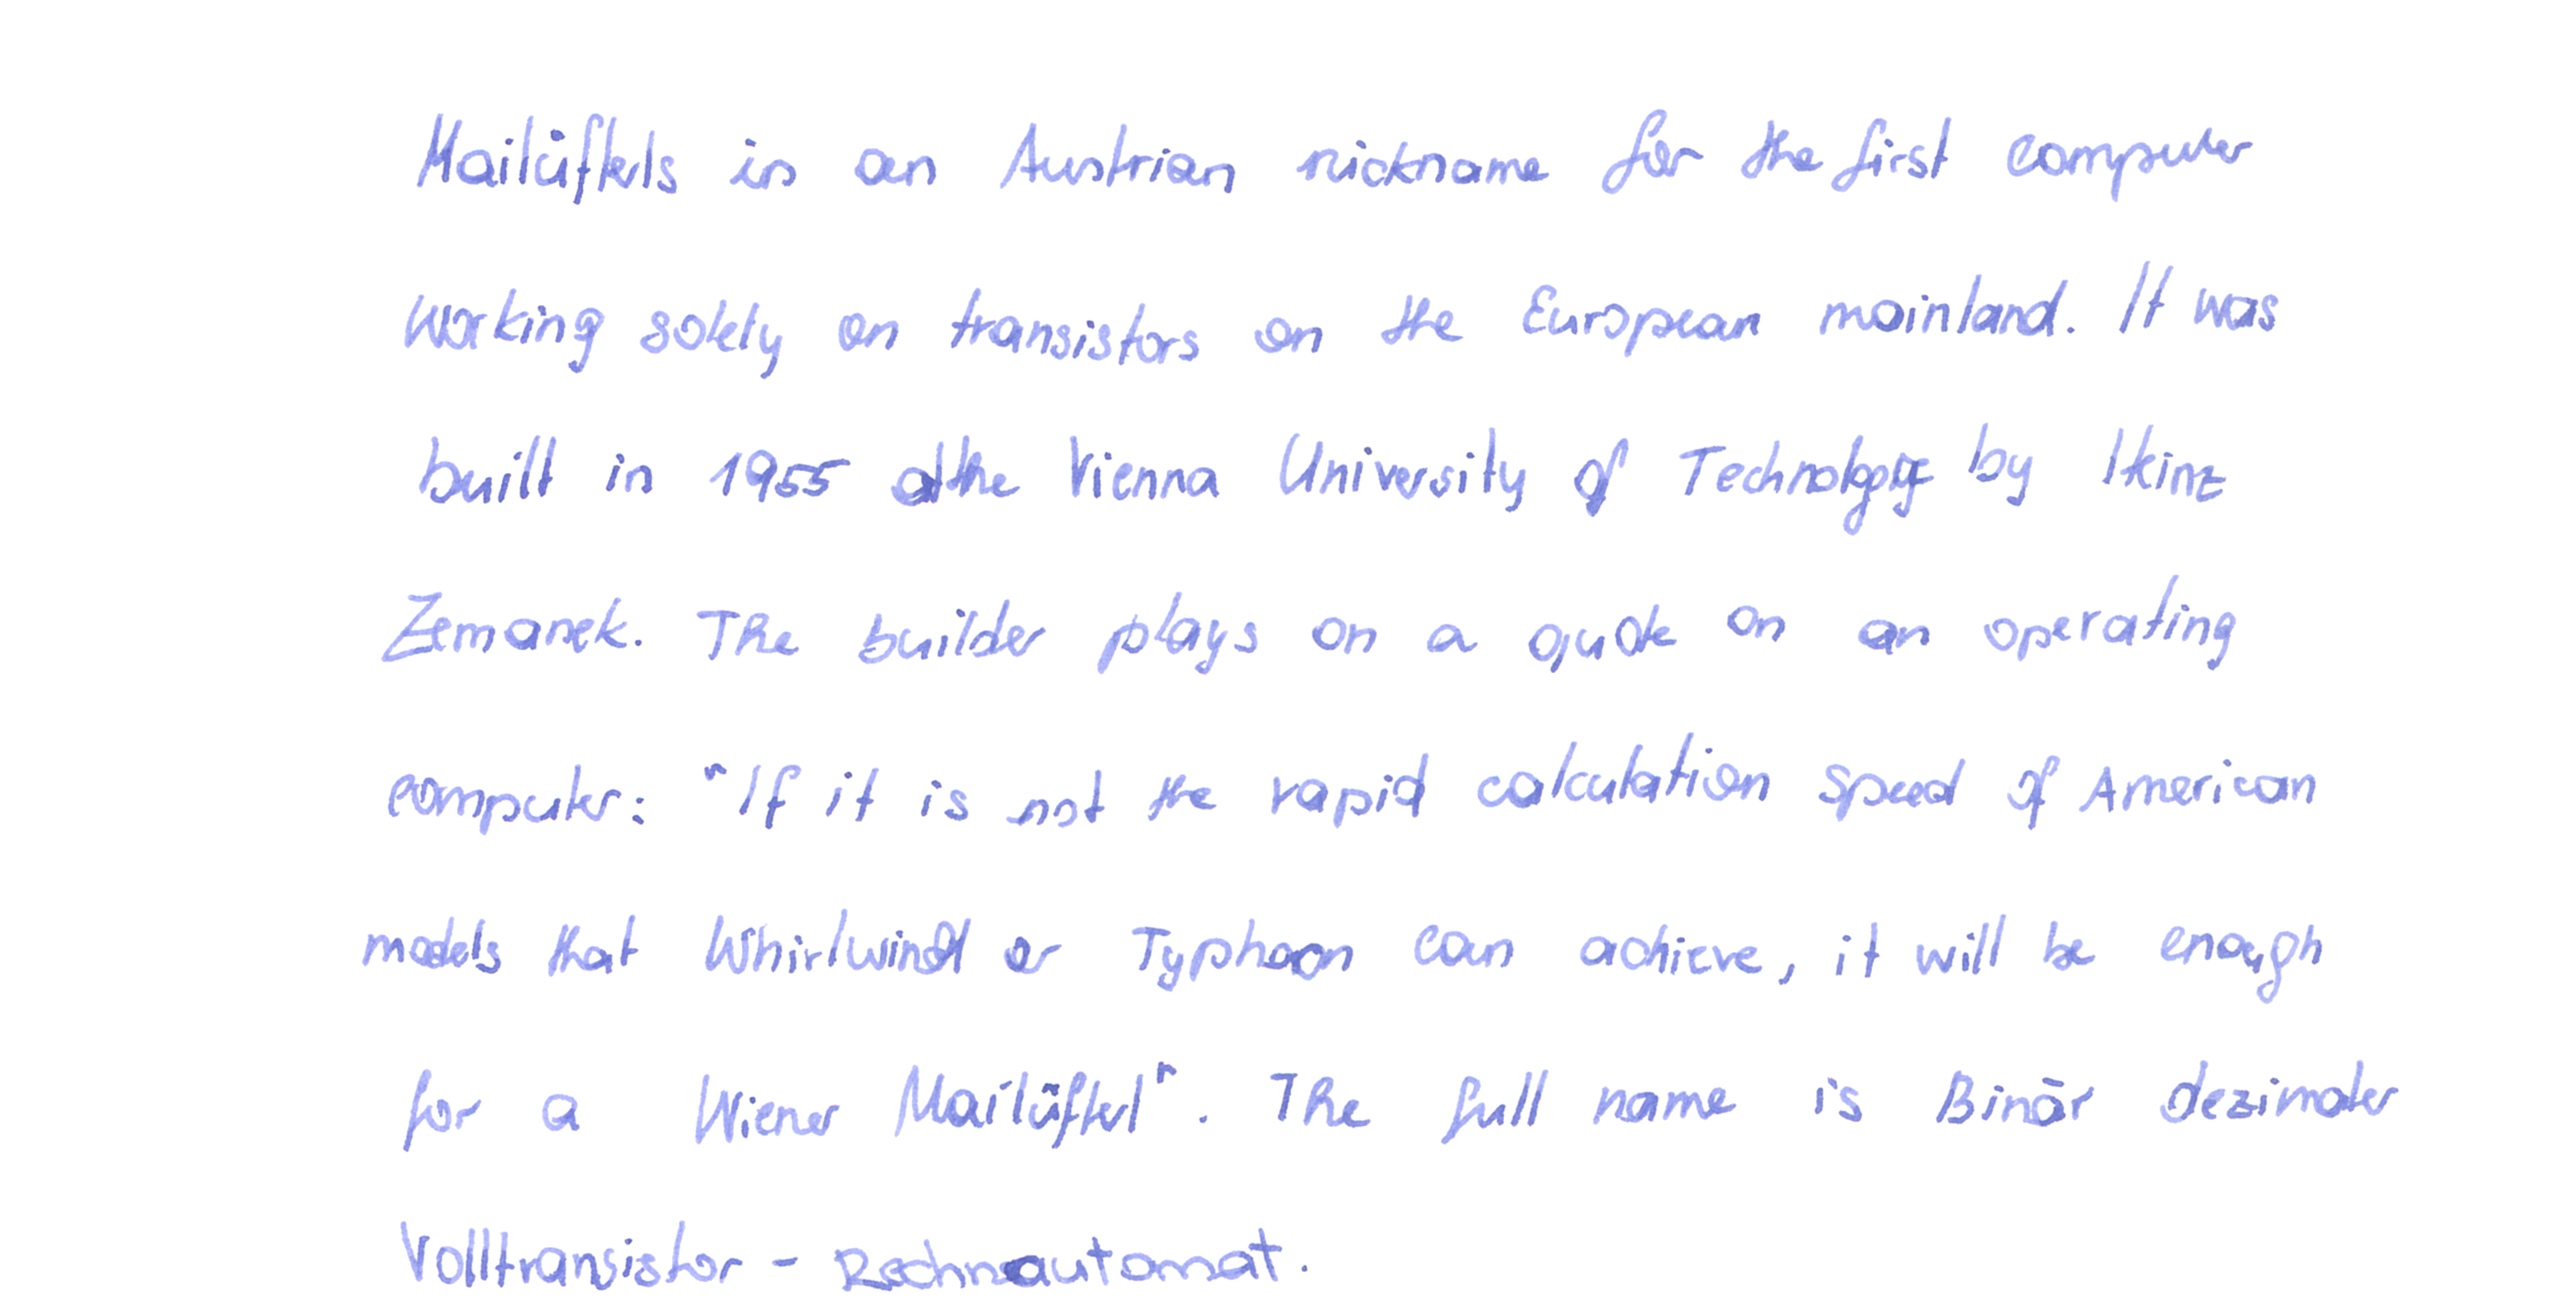 Mailüfterls is an Austrian nickname for the first computer
working solely on transistors on the European mainland. It was
built in 1955 at the Vienna University of Technology by Heinz
Zemanek. The builder plays on a quote on an operating
computer: "If it is not the rapid calculation speed of American
models that Whirlwind or Typhoon can achieve, it will be enough
for a Wiener Mailüfterl". The full name is Binär dezimaler
Volltransistor - Rechnautomat.